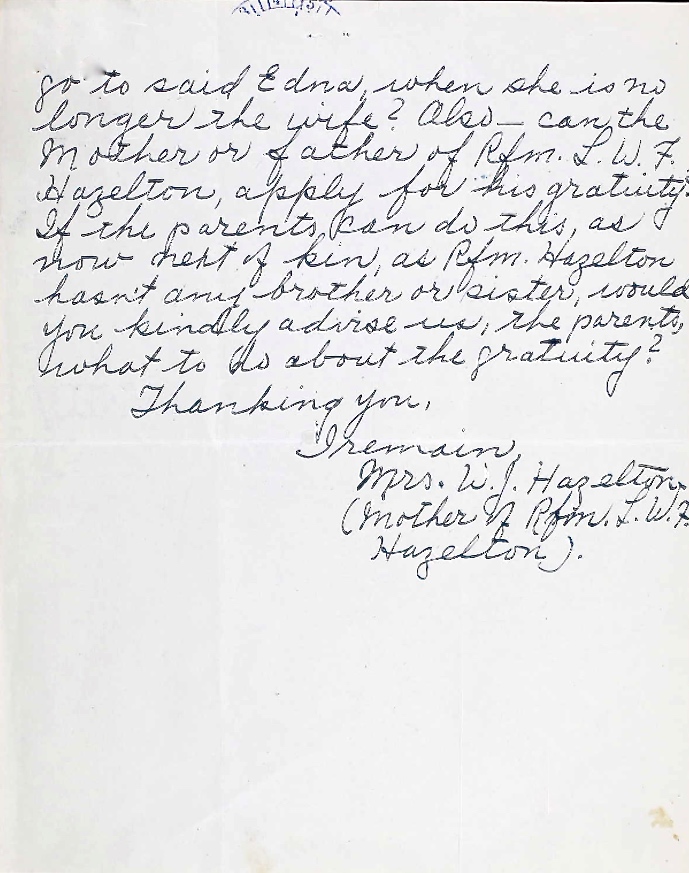 go to said Edna, when she is no
longer the wife? Also — can the
Mother or father of Rfm. L. W. F.
Hazelton, apply for his gratuity.
If the parents, can do this, as
now next of kin, as Rfm. Hazelton
hasn't any brother or sister, would
you kindly advise us, the parents,
what to do about the gratuity?
Thanking you,
I remain,
Mrs. W. J. Hazelton.
(Mother of Rfm. L. W. F.
Hazelton).